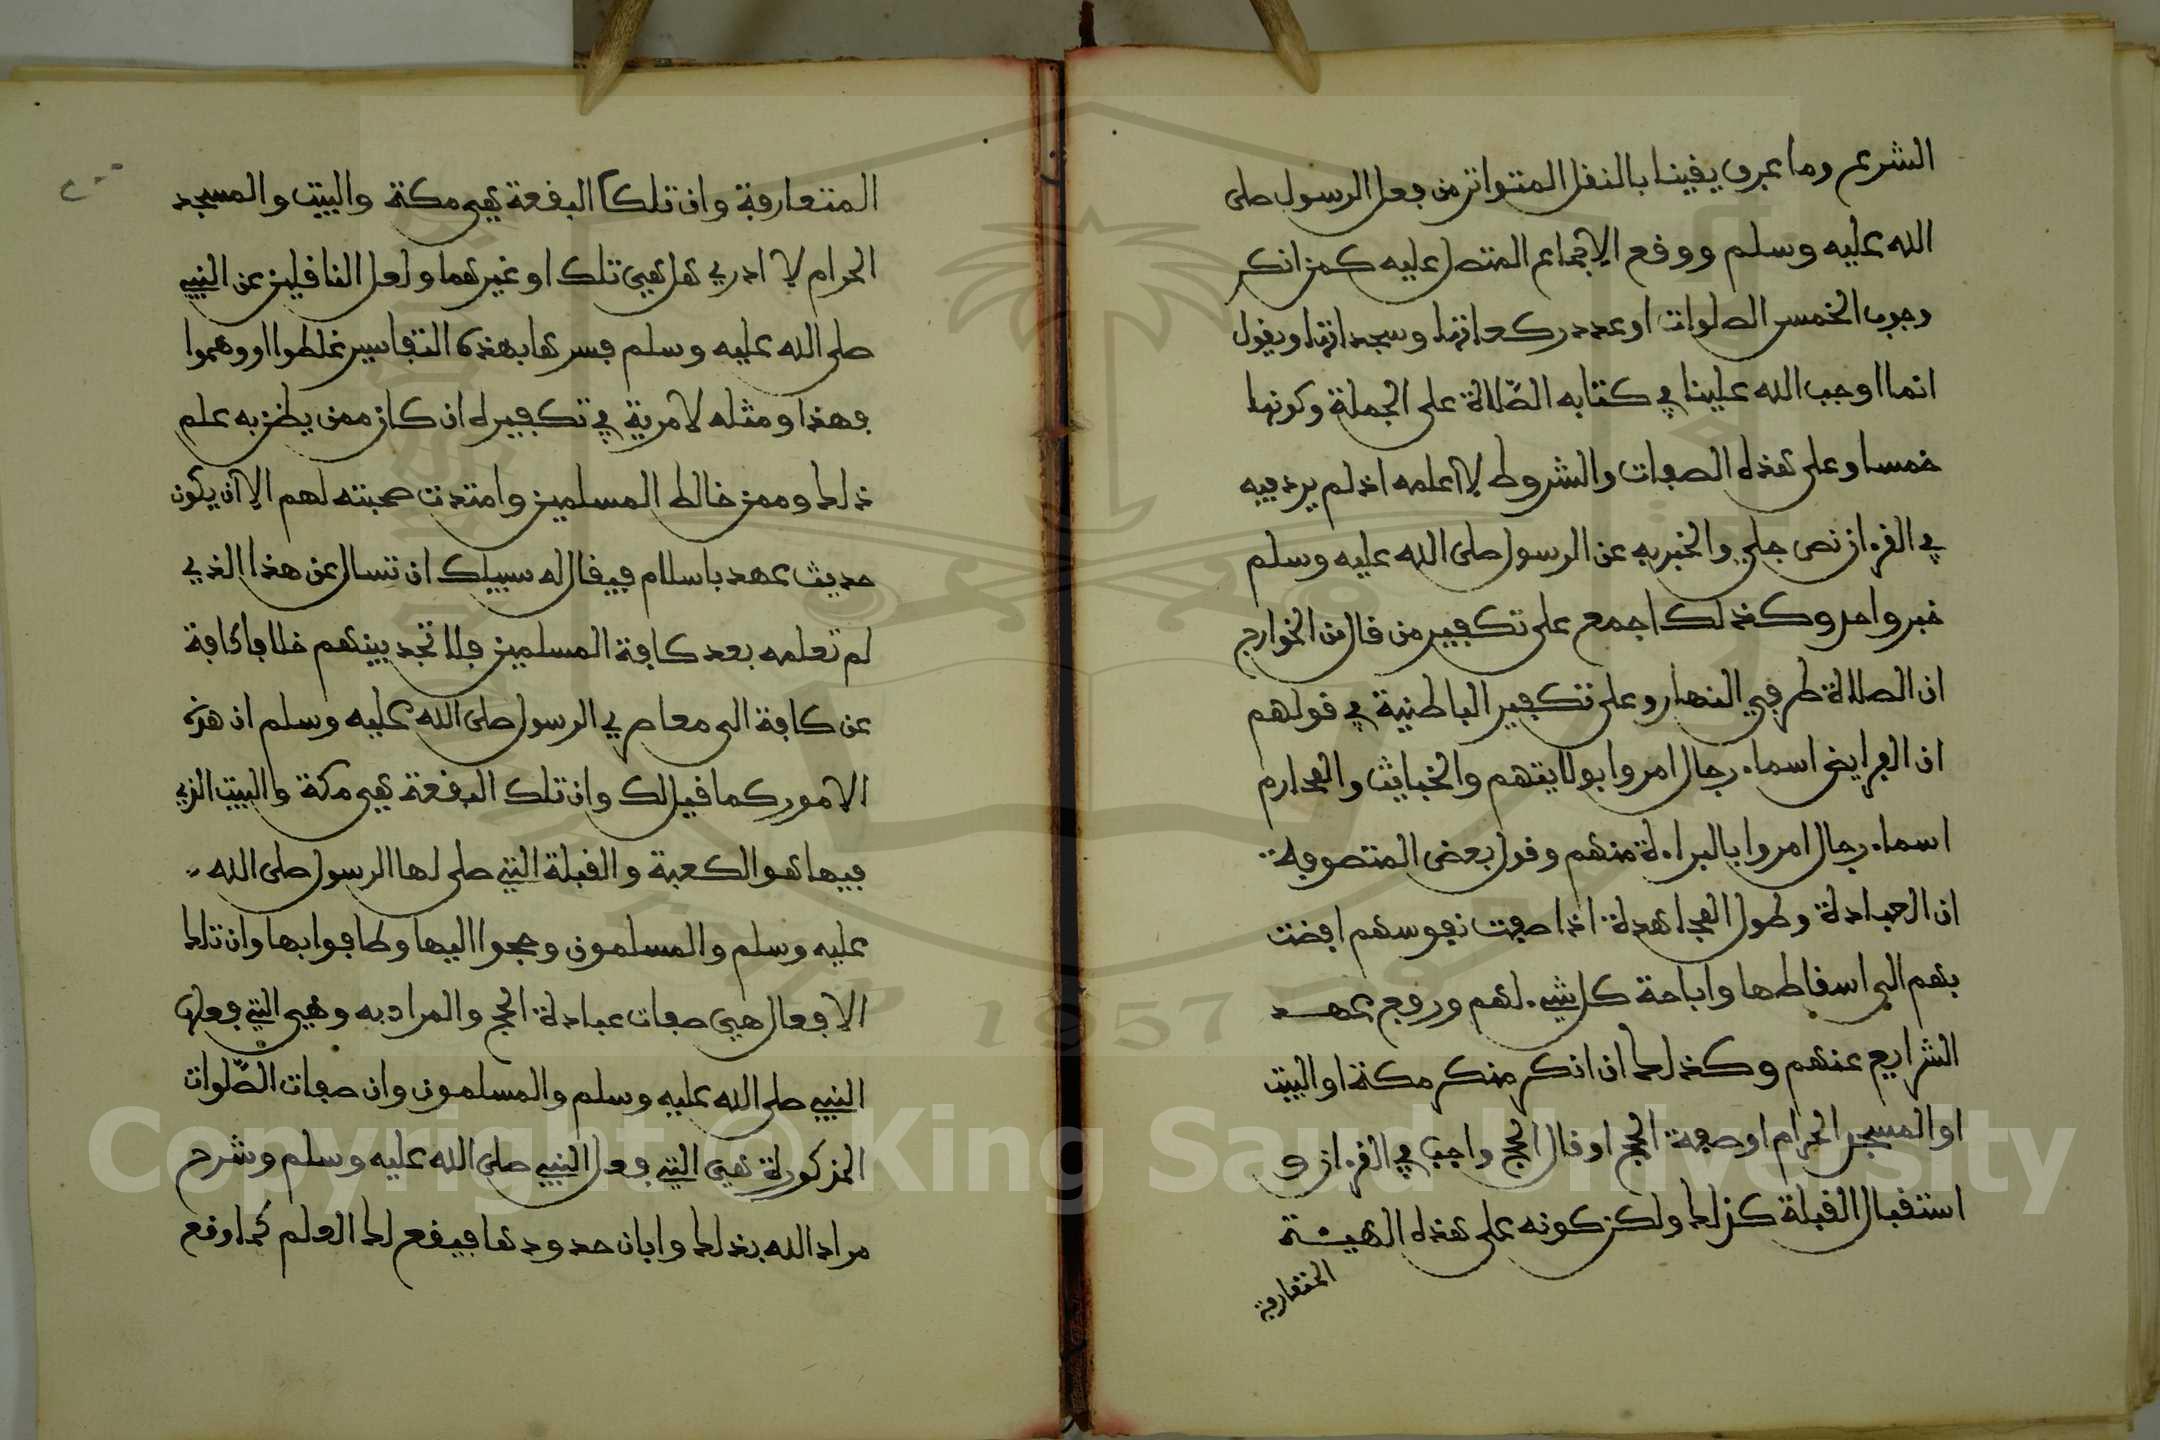 الشرع وما عرف يقينا بالنقل المتواتر من فعل الرسول صلى
الله عليه وسلم ووقع الاجماع المتصل عليه كمن انكر
وجوب الخمس الصلوات او عدد ركعاتها وسجداتها ويقول
انما اوجب الله علينا في كتابه الصّلاة على الجملة وكونها
خمسا وعلى هذه الصفات والشروط لا اعلمه اذ لم يرد فيه
في القرءان نص جلي والخبر به عن الرسول صلى الله عليه وسلم
خبر واحد وكذلك اجمع على تكفير من قال من الخوارج
ان الصلاة طرفي النهار وعلى تكفير الباطنية في قولهم
ان الفرايض اسماء رجال امروا بولايتهم والخبايث والمحارم
اسماء رجال امروا بالبراءة منهم وقول بعض المتصوفة
ان العبادة وطول المجاهدة اذا صفت نفوسهم افضت
بهم الى اسقاطها واباحة كل شيء لهم ورفع عهد
الشرايع عنهم وكذلك ان انكر منكر مكة او البيت
او المسجد الحرام او صفة الحج او قال الحج واجب في القرءان و
استقبال القبلة كذلك ولكن كونه على هذه الهيئة
المتعارفة
المتعارفة وان تلك البقعة هي مكة والبيت والمسجد
الحرام لا ادري هل هي تلك او غيرها ولعل الناقلين عن النبي
صلى الله عليه وسلم فسرها بهذه التفاسير غلطوا او وهموا
فهذا ومثله لا مرية في تكفيره ان كان ممن يظن به علم
ذلك وممن خالط المسلمين وامتدت صحبته لهم الا ان يكون
حديث عهد باسلام فيقال له سبيلك ان تسال عن هذا الذي
لم تعلمه بعد كافة المسلمين فلا تجد بينهم خلافا كافة
عن كافة الى معاصري الرسول صلى الله عليه وسلم ان هذه
الامور كما قيل لك وان تلك البقعة هي مكة والبيت الذي
فيها هو الكعبة والقبلة التي صلى لها الرسول صلى الله
عليه وسلم والمسلمون وحجوا اليها وطافوا بها وان تلك
الافعال هي صفات عبادة الحج والمراد به وهي التي فعلها
النبي صلى الله عليه وسلم والمسلمون وان صفات الصّلوات
المذكورة هي التي فعل النبي صلى الله عليه وسلم وشرح
مراد الله بذلك وابان حدودها فيقع لك العلم كما وقع
Copyright © King Saud University
1957